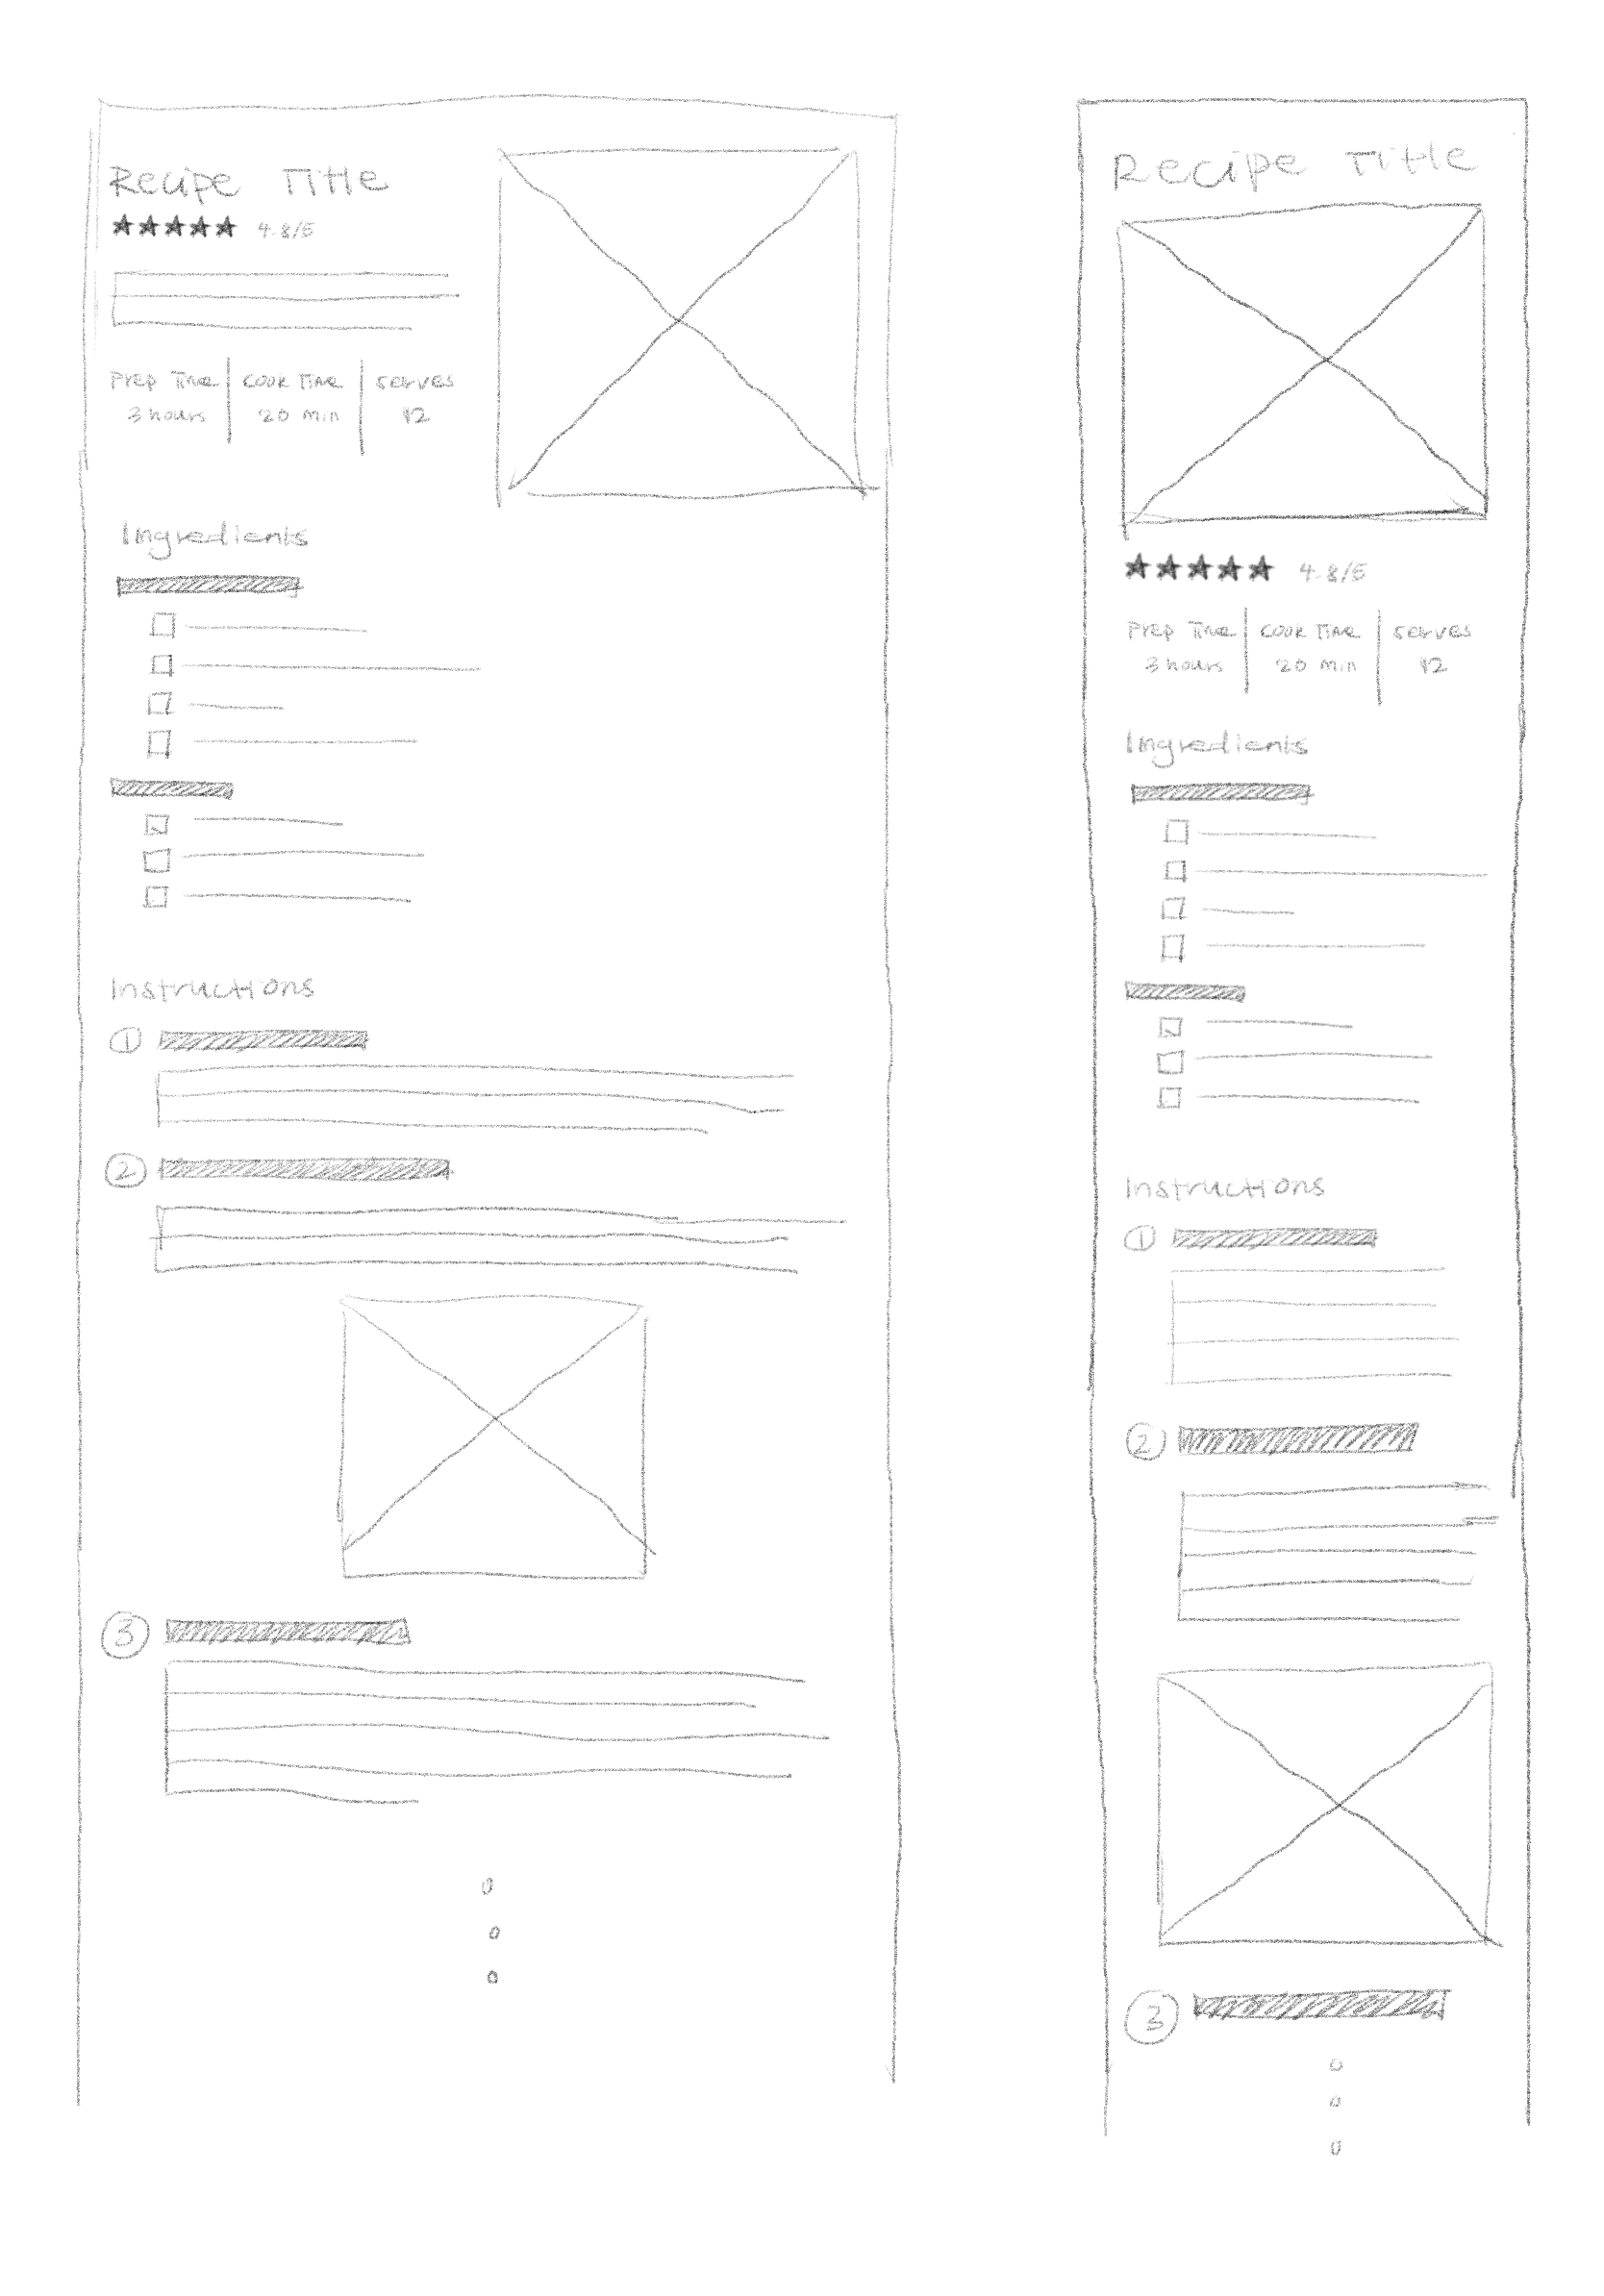 Recipe Title
4.8/5
Prep Time Cook Time Serves
3 hours 20 min 12
Ingredients
Instructions
1
2
3
Recipe Title
4.8/5
Prep Time Cook Time Serves
3 hours 20 min 12
Ingredients
Instructions
1
2
3